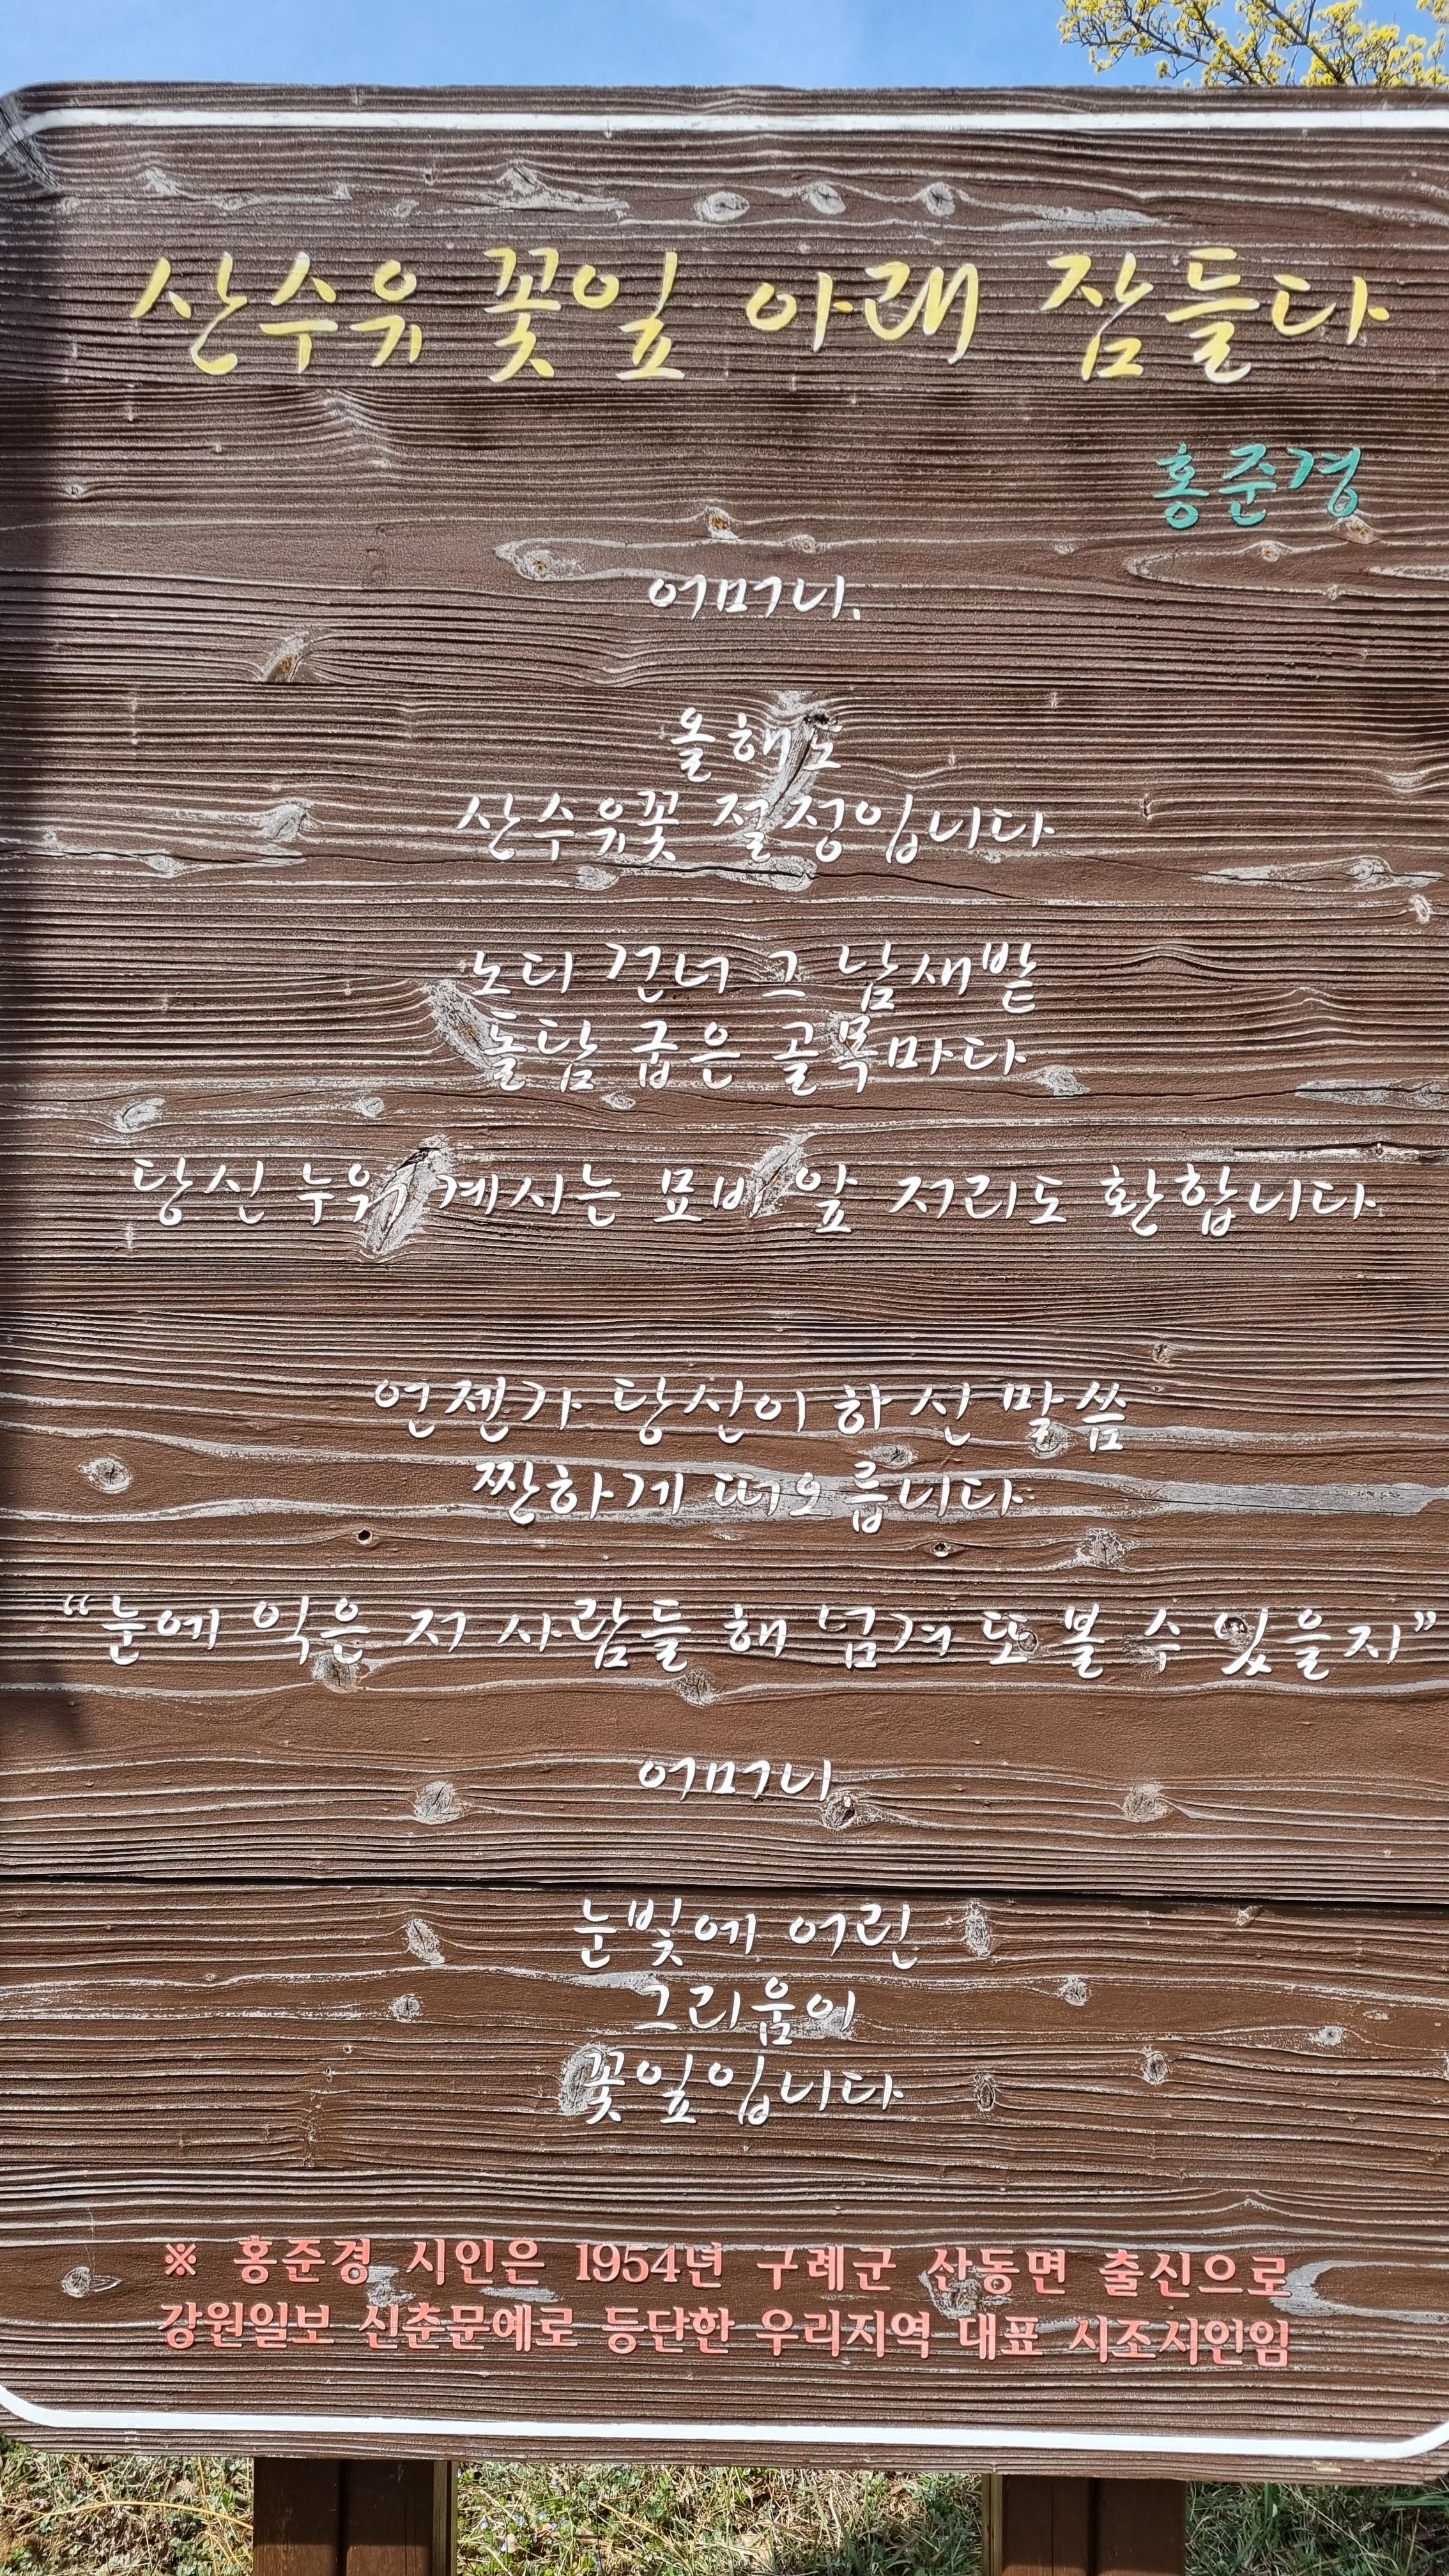 산수유 꽃잎 아래 잠들다
홍준경
어머니.
올해도
산수유꽃 절정입니다
노디 건너 그 남새밭
돌담 굽은 골목마다
당신 누워 계시는 묘비 앞 저리도 환합니다
언젠가 당신이 하신 말씀
짠하게 떠오릅니다
“눈에 익은 저 사람들 해 넘겨 또 볼 수 있을지”
어머니.
눈빛에 어린
그리움이
꽃잎입니다
※ 홍준경 시인은 1954년 구례군 산동면 출신으로
강원일보 신춘문예로 등단한 우리지역 대표 시조시인임